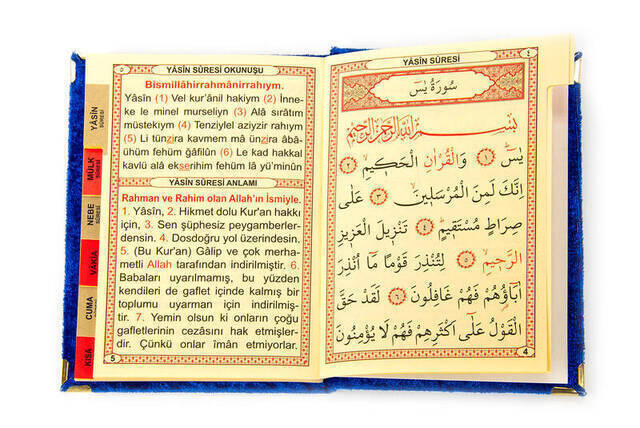 YÂSİN SÛRESİ
٤
سُورَةُ يٰسٓ
بِسْمِ اللّٰهِ الرَّحْمٰنِ الرَّحٖيمِ
يٰسٓ ﴿١﴾ وَالْقُرْاٰنِ الْحَكٖيمِ ﴿٢﴾
اِنَّكَ لَمِنَ الْمُرْسَلٖينَ ﴿٣﴾ عَلٰى
صِرَاطٍ مُسْتَقٖيمٍ ﴿٤﴾ تَنْزٖيلَ الْعَزٖيزِ
الرَّحٖيمِ ﴿٥﴾ لِتُنْذِرَ قَوْمًا مَٓا اُنْذِرَ
اٰبَٓاؤُ۬هُمْ فَهُمْ غَافِلُونَ ﴿٦﴾ لَقَدْ حَقَّ
الْقَوْلُ عَلٰٓى اَكْثَرِهِمْ فَهُمْ لَا يُؤْمِنُونَ
4
٥
YÂSİN SÛRESİ OKUNUŞU
Bismillâhirrahmânirrahıym.
Yâsîn (1) Vel kur'ânil hakiym (2) İnne-
ke le minel murseliyn (3) Alâ sırâtım
müstekıym (4) Tenziylel aziyzir rahıym
(5) Li tünzira kavmem mâ ünzira âbâ-
ühüm fehüm ğâfilûn (6) Le kad hakkal
kavlü alâ ekserihim fehüm lâ yü'minûn
YÂSİN SÛRESİ ANLAMI
Rahman ve Rahim olan Allah'ın İsmiyle.
1. Yâsîn, 2. Hikmet dolu Kur'an hakkı
için, 3. Sen şüphesiz peygamberler-
densin. 4. Dosdoğru yol üzerindesin.
5. (Bu Kur'an) Gâlip ve çok merha-
metli Allah tarafından indirilmiştir. 6.
Babaları uyarılmamış, bu yüzden
kendileri de gaflet içinde kalmış bir
toplumu uyarman için indirilmiş-
tir. 7. Yemin olsun ki onların çoğu
gafletlerinin cezasını hak etmişler-
dir. Çünkü onlar îmân etmiyorlar.
5
YÂSİN
SÛRESİ
MÜLK
SÛRESİ
NEBE
SÛRESİ
VÂKIA
CUMA
KISA